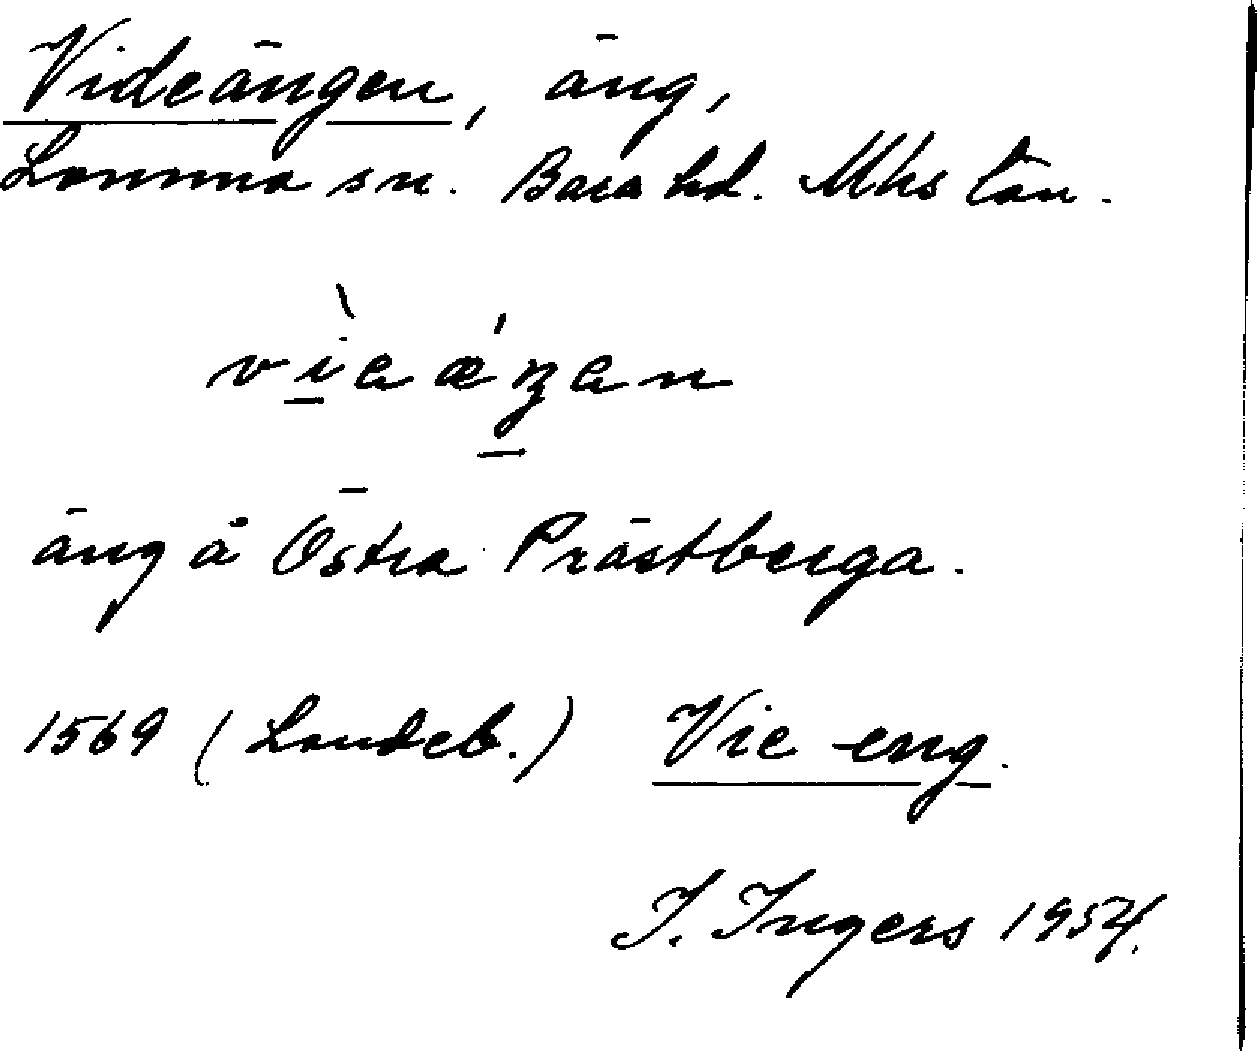 Videängen, äng,
Lomma sn. Bara hd. Mhs län.
äng å Östra Prästberga.
1569 (Landeb.) Vie eng.
I. Ingers 1954.